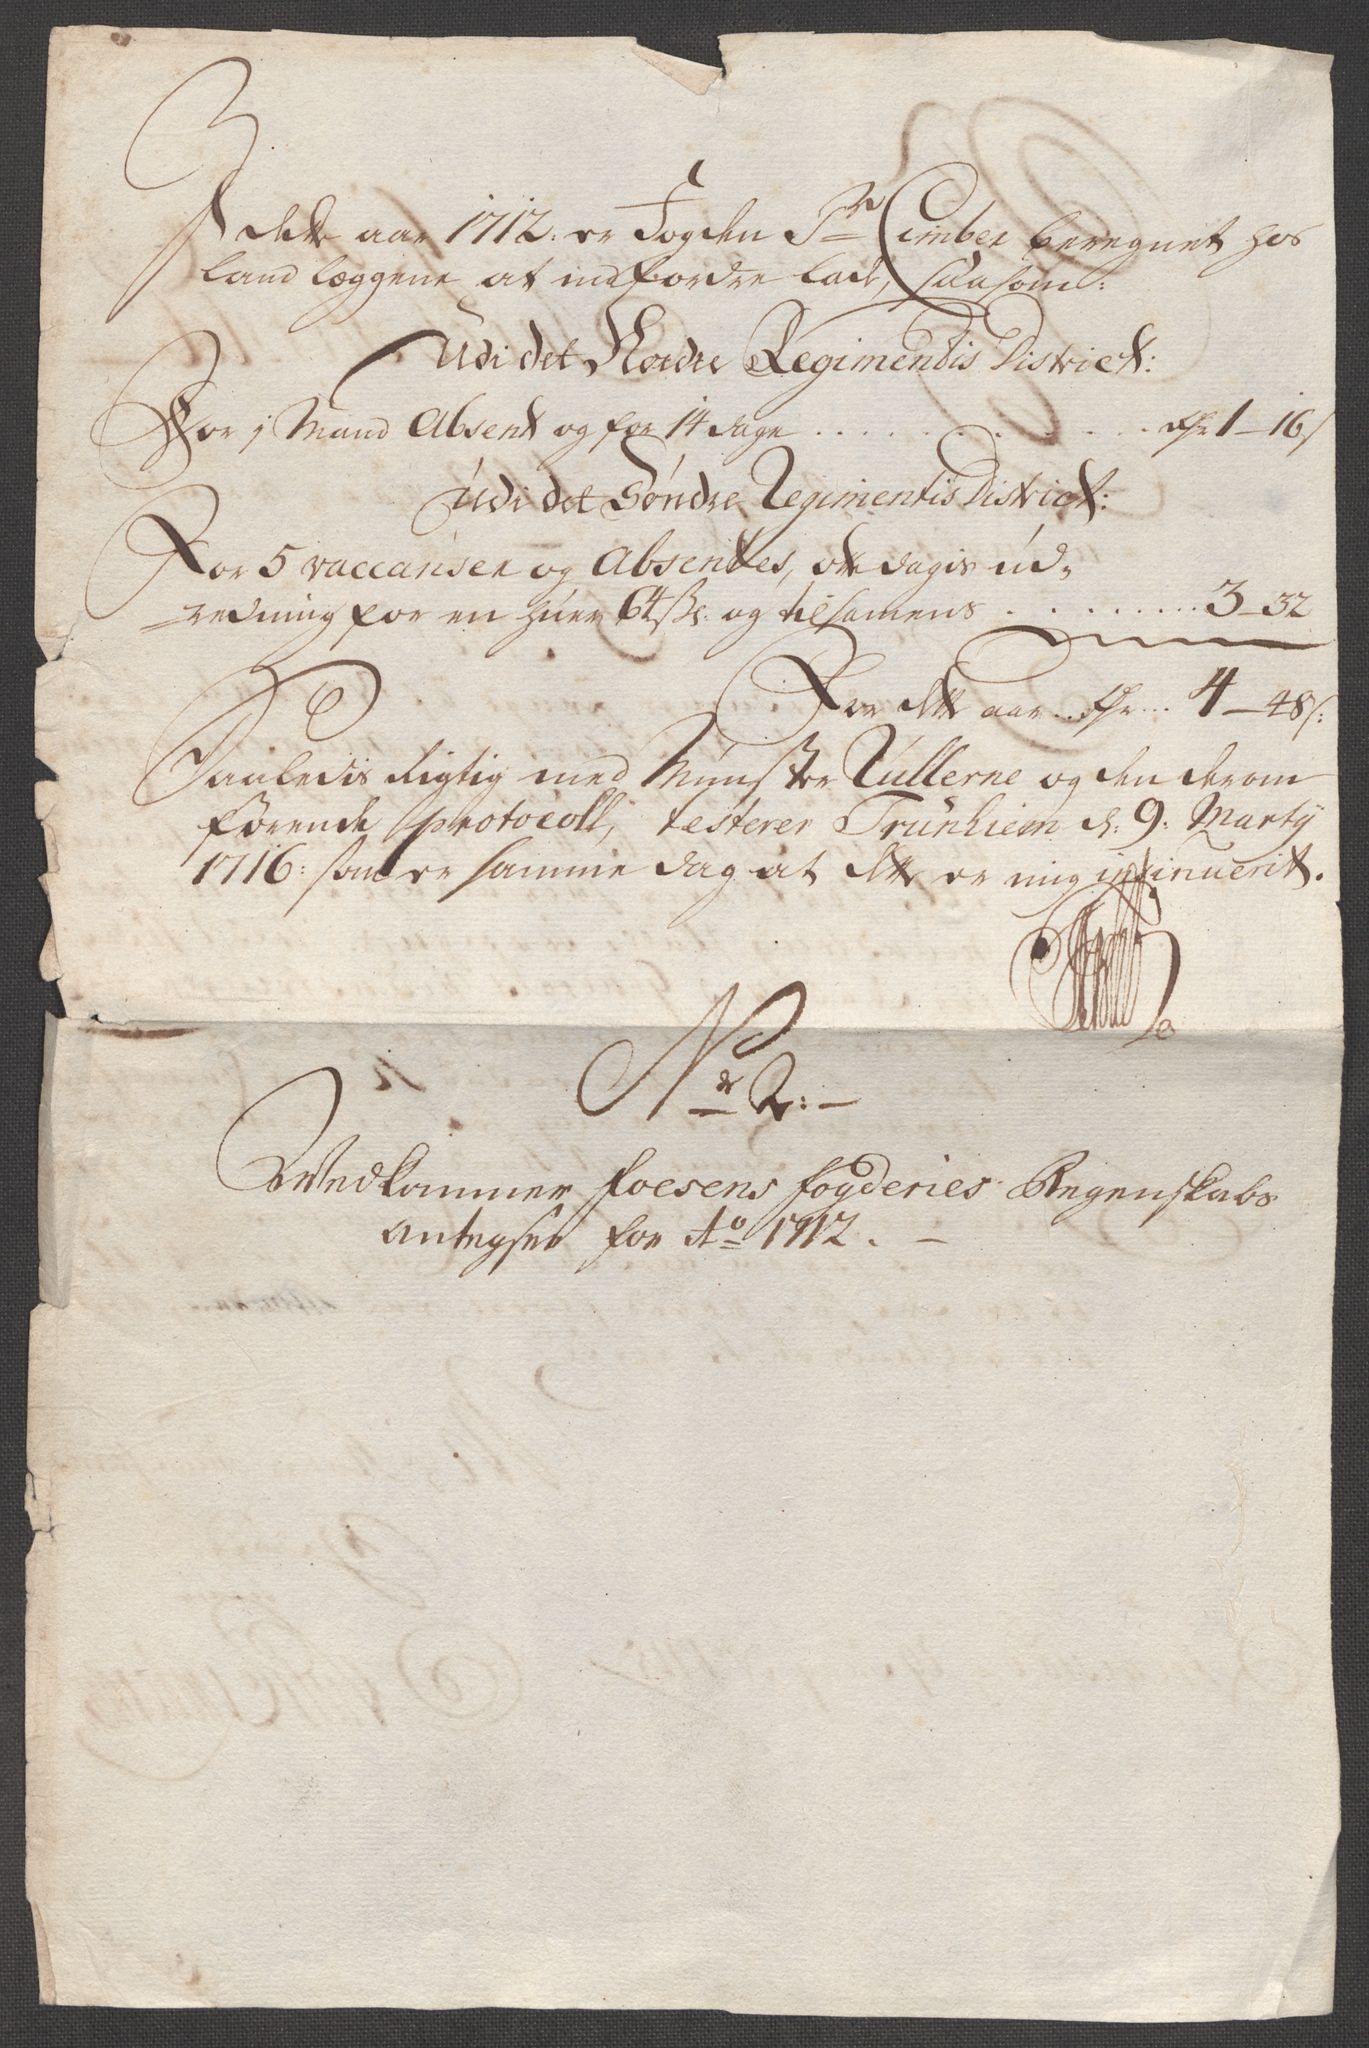 I dette aar 1712: er Fogden Sr Cimber beregnet hos
land læggene at indfordre lade, saasom:
Udi det Nordre Regimentis District:
For 1 Mand Absent og for 14 dage . . . . . . . . . . Rdr 1 – 16 s
Udi det Søndre Regimentis District:
For 5 vaccanser og Absentes, otte dagis ud,
redning for en huer 64 sk: og tilsamens . . . . . . . . . 3 – 32
For dette aar .. Rdr ... 4 – 48 s:
Saaledis Rigtig med Mynster Rullerne og den derom
førende protocoll, testerer Trunhiem d: 9: Marty
1716: som er samme dag at dette er mig insinuerit.
No 2: –
Vedkommer Foesens fogderies Regenskabs
Antegner for Ao 1712. –